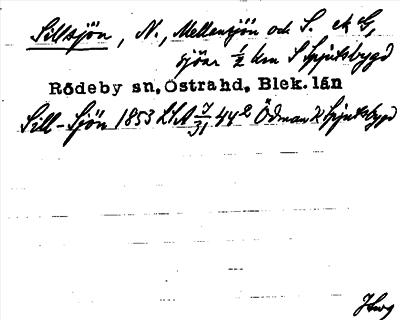 Sillsjön, N., Mellersjön och S. ek G,
sjöar ½ km S Spjutsbygd
Rödeby sn. Östra hd. Blek. län
Sill-Sjön 1853 LSA 7/31 44² Ödman k Spjutsbygd